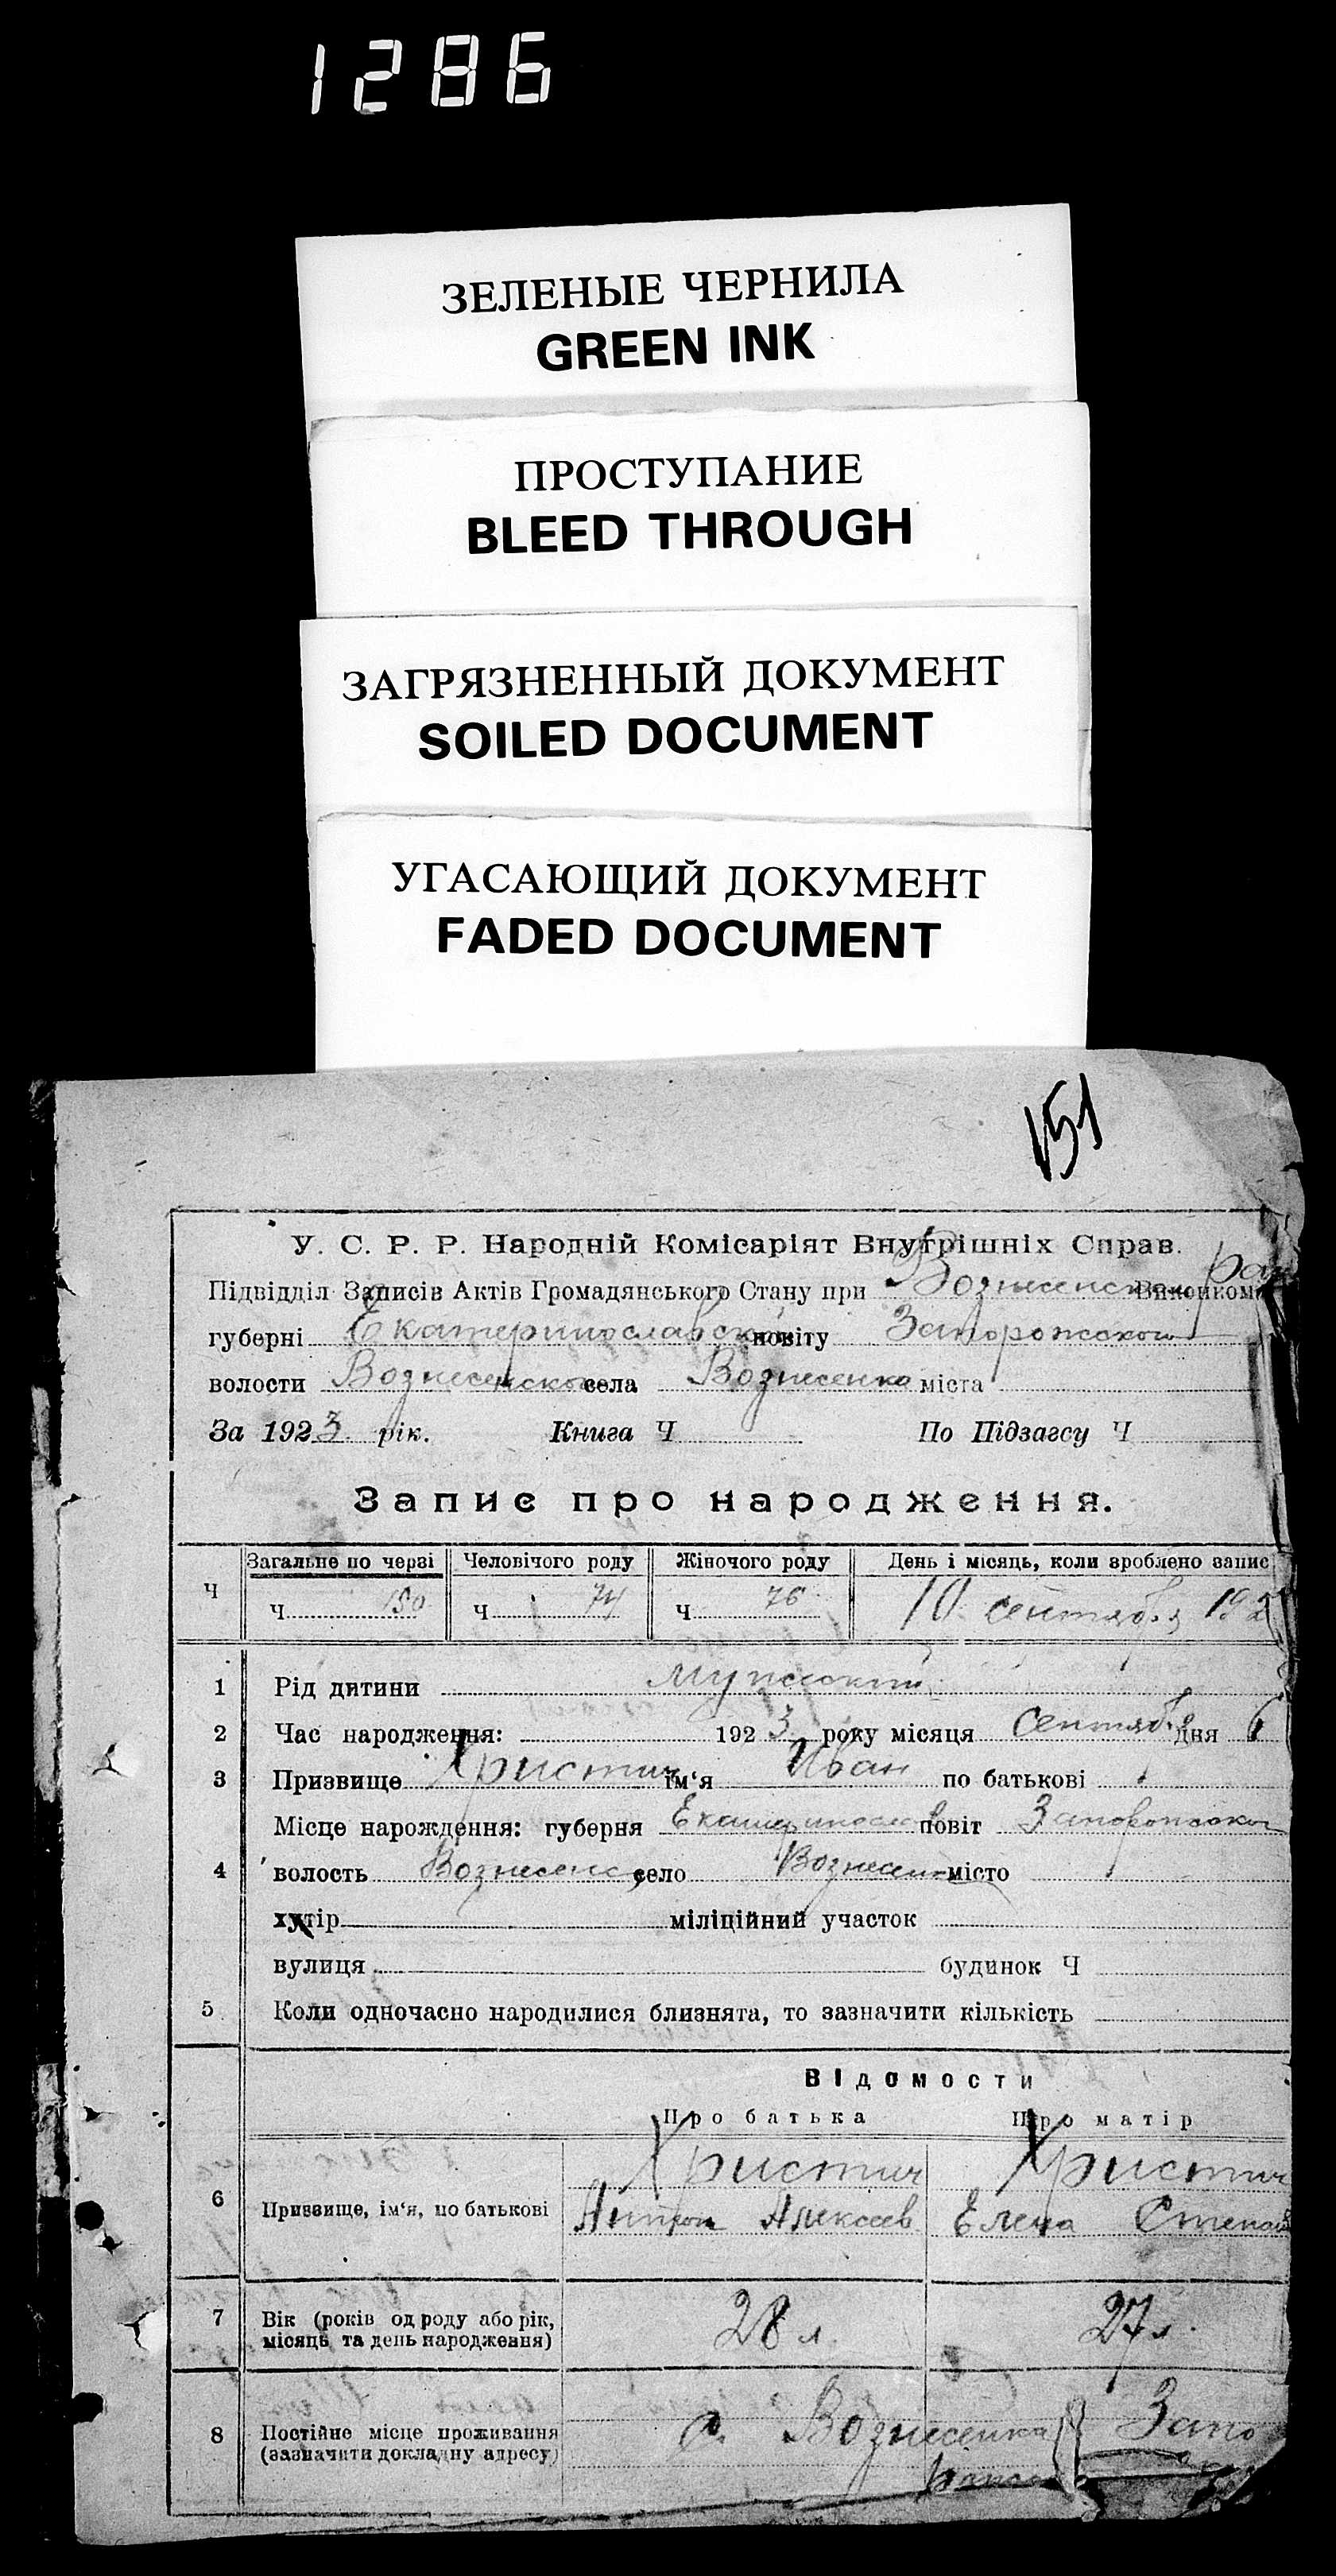 1286
ЗЕЛЕНЫЕ ЧЕРНИЛА
GREEN INK
ПРОСТУПАНИЕ
BLEED THROUGH
ЗАГРЯЗНЕННЫЙ ДОКУМЕНТ
SOILED DOCUMENT
УГАСАЮЩИЙ ДОКУМЕНТ
FADED DOCUMENT
151
У. С. Р. Р. Народній Комісаріят Внутрішніх Справ.
Підвідділ Записів Актів Громадянського Стану при Вознесенском рай Виконком
губерні Екатеринославской повіту Запорожского
волости Вознесенской села Вознесенка міста
За 1923 рік. Книга Ч По Підзагсу Ч
Запис про народження.
Загальне по черзі Человічого роду Жіночого роду День і місяць, коли зроблено запис
Ч Ч 150 Ч 74 Ч 76 10 сентября 192
1 Рід дитини мужской
2 Час народження: 1923 року місяця Сентября дня 6
3 Призвище Христич ім'я Иван по батькові
Місце нарождення: губерня Екатеринослав повіт Запорожской
4 волость Вознесенс село Вознесенка місто
хутір міліційний участок
вулиця будинок Ч
5 Коли одночасно народилися близнята, то зазначити кількість
Відомости
Про батька Про матір
Христич Христич
6 Призвище, ім'я, по батькові Антон Алексеев Елена Степан
7 Вік (років од роду або рік, місяць та день народження) 28 л. 27 л.
8 Постійне місце проживання (зазначити докладну адресу) с. Вознесенка Запо